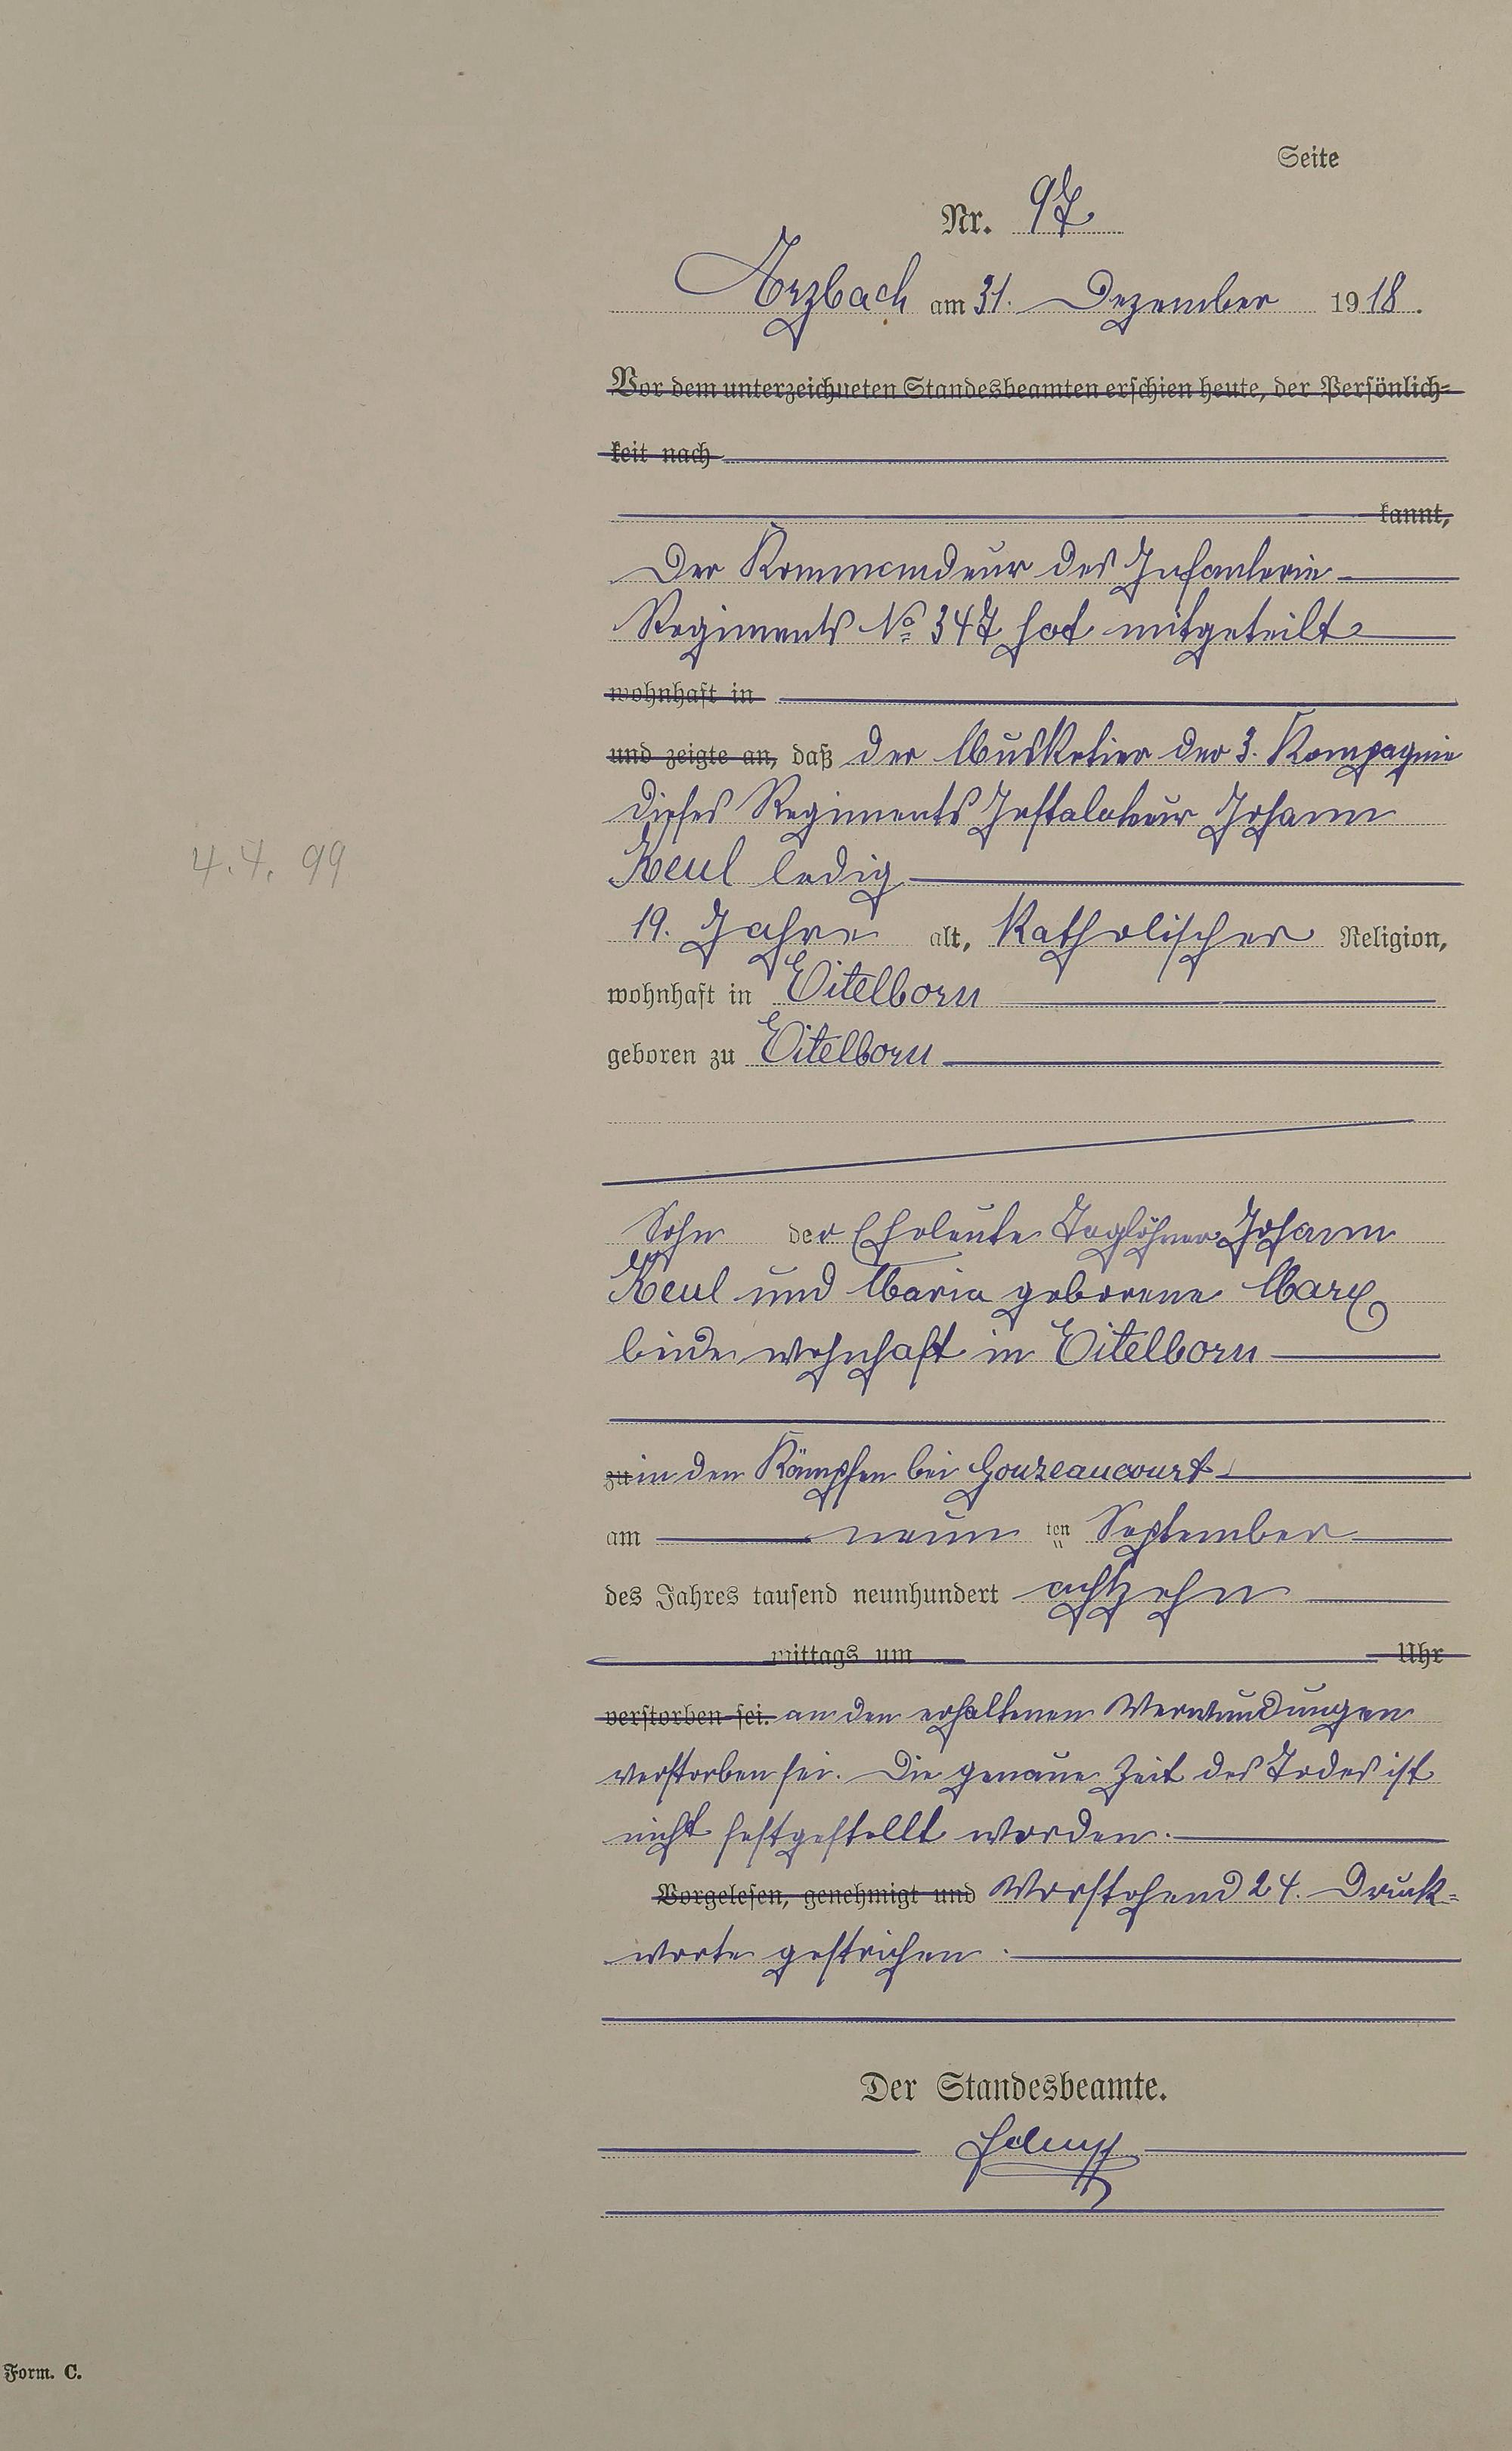 Seite
Nr. 97
Arzbach am 31. Dezember 1918.
Vor dem unterzeichneten Standesbeamten erschien heute, der Persönlich-
keit nach
kannt,
Der Kommandeur des Infanterie
Regiments No 347 hat mitgeteilt
wohnhaft in
und zeigte an, daß der Musketier der 3. Kompagnie
dieses Regiments Instalateur Johann
4.4.99
Keul ledig
19. Jahre alt, Katholischer Religion,
wohnhaft in Eitelborn
geboren zu Eitelborn
Sohn der Eheleute Taglöhner Johann
Keul und Maria geborene Marx
beide wohnhaft in Eitelborn
zu in den Kämpfen bei Gouzeaucourt
am neun ten September
des Jahres tausend neunhundert achtzehn
mittags um Uhr
verstorben sei. an den erhaltenen Verwundungen
verstorben sei. Die genaue Zeit des Todes ist
nicht festgestellt worden.
Vorgelesen, genehmigt und Vorstehend 24. Druck-
worte gestrichen.
Der Standesbeamte.
Form. C.